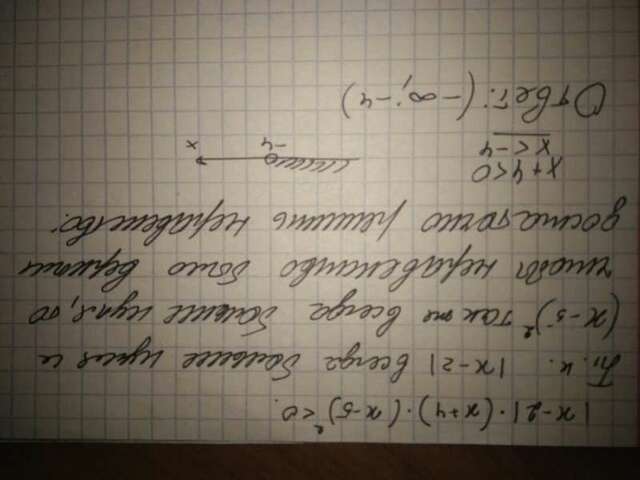 |x-2|·(x+4)·(x-5)²<0.
Т.к. |x-2| всегда больше нуля и
(x-5)² также всегда больше нуля, то
чтобы неравенство было верным
достаточно решить неравенство:
x+4<0
x<-4
-4
x
Ответ: (-∞; -4)